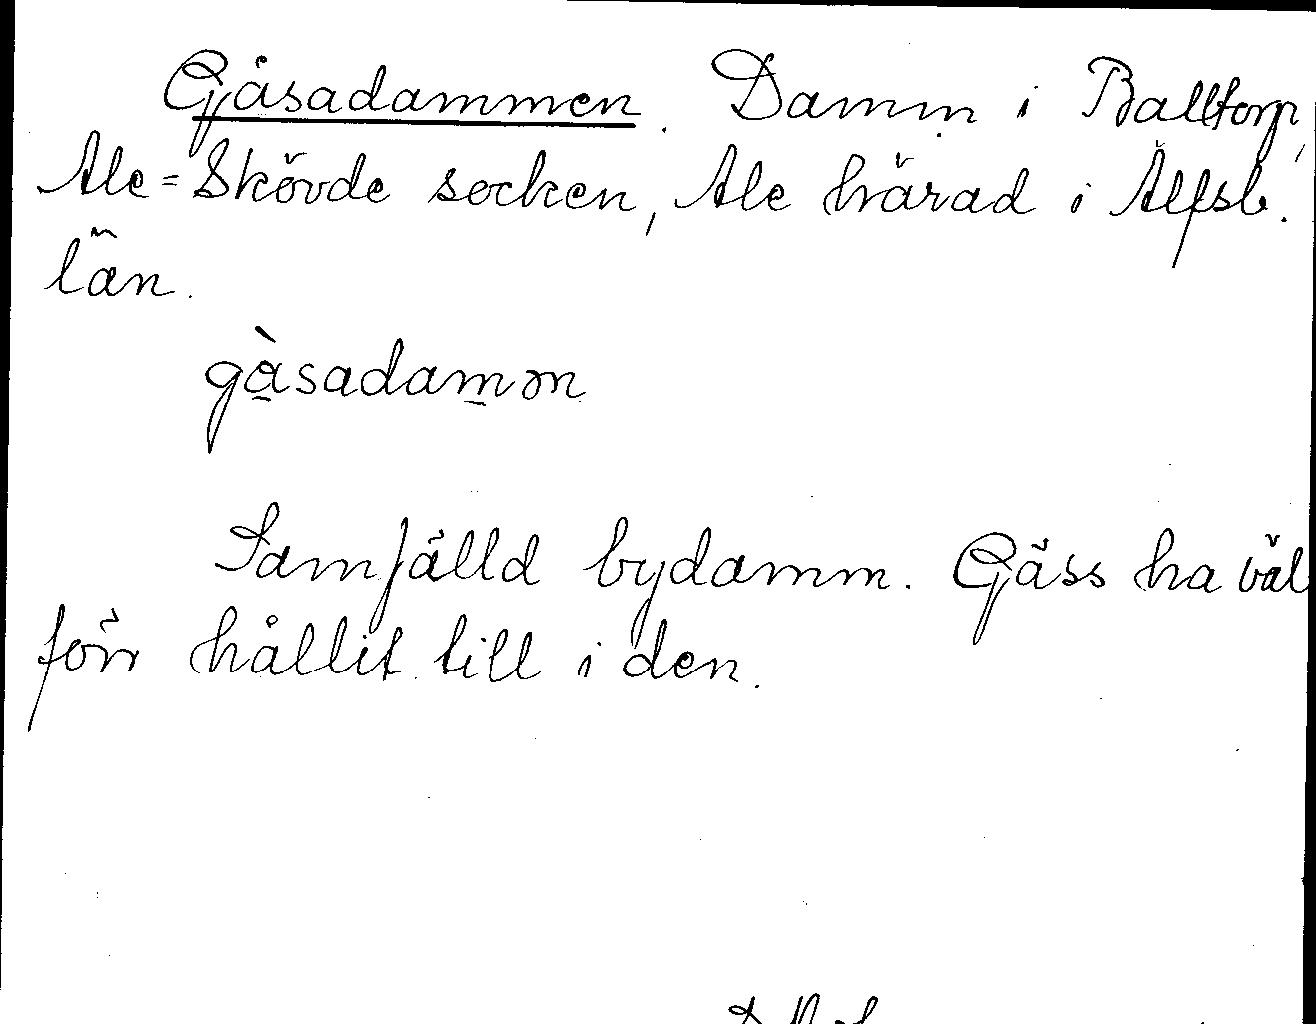 Gåsadammen. Damm i Balltorp,
Ale=Skövde socken, Ale härad i Älfsb.
län.
gàsadamən
Samfälld bydamm. Gäss ha väl
förr hållit till i den.